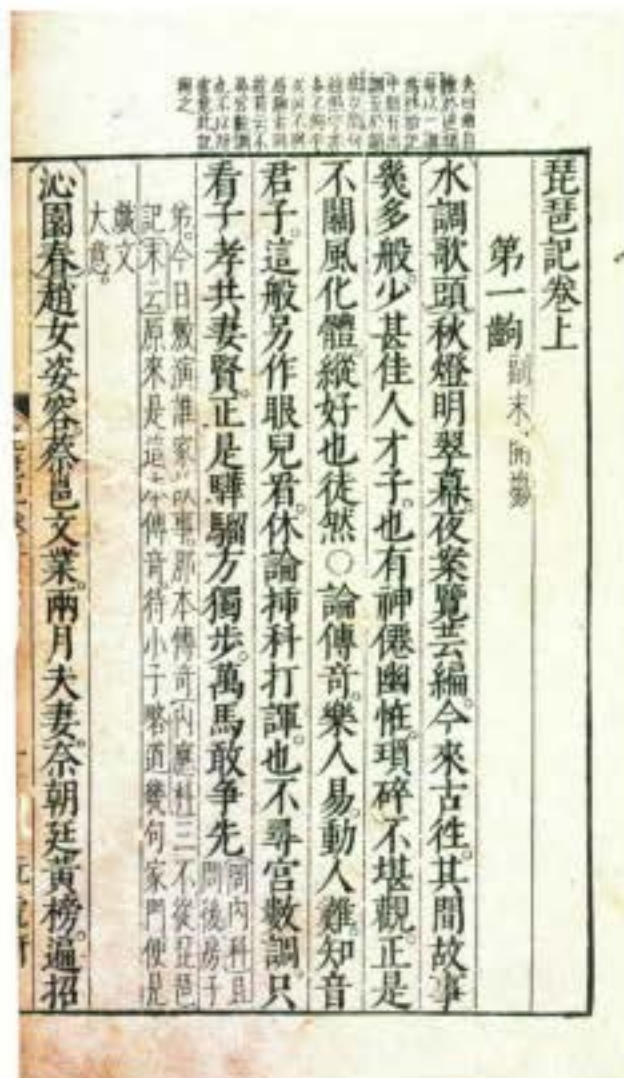 琵琶記卷上
第一齣 副末開場
水調歌頭 秋燈明翠幕。夜案覽芸編。今來古徃。其間故事
幾多般。少甚佳人才子。也有神僊幽恠。瑣碎不堪觀。正是
不關風化體。縱好也徒然○論傳奇。樂人易。動人難。知音
君子。這般另作眼兒看。休論揷科打諢。也不尋宮數調。只
看子孝共妻賢。正是驊騮方獨步。萬馬敢爭先 問內科且
問後房子
弟。今日敷演誰家故事。那本傳奇 內應科 三不從琵琶
記 末云 原來是這本傳奇。待小子畧道幾句家門便見
戲文
大意。
沁園春 趙女姿容。蔡邕文業。兩月夫妻。奈朝廷黃榜。遍招